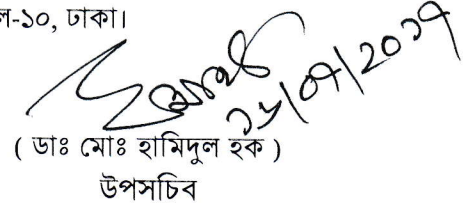 ল-১০, ঢাকা।
১৮/০৭/২০১৭
( ডাঃ মোঃ হামিদুল হক )
উপসচিব